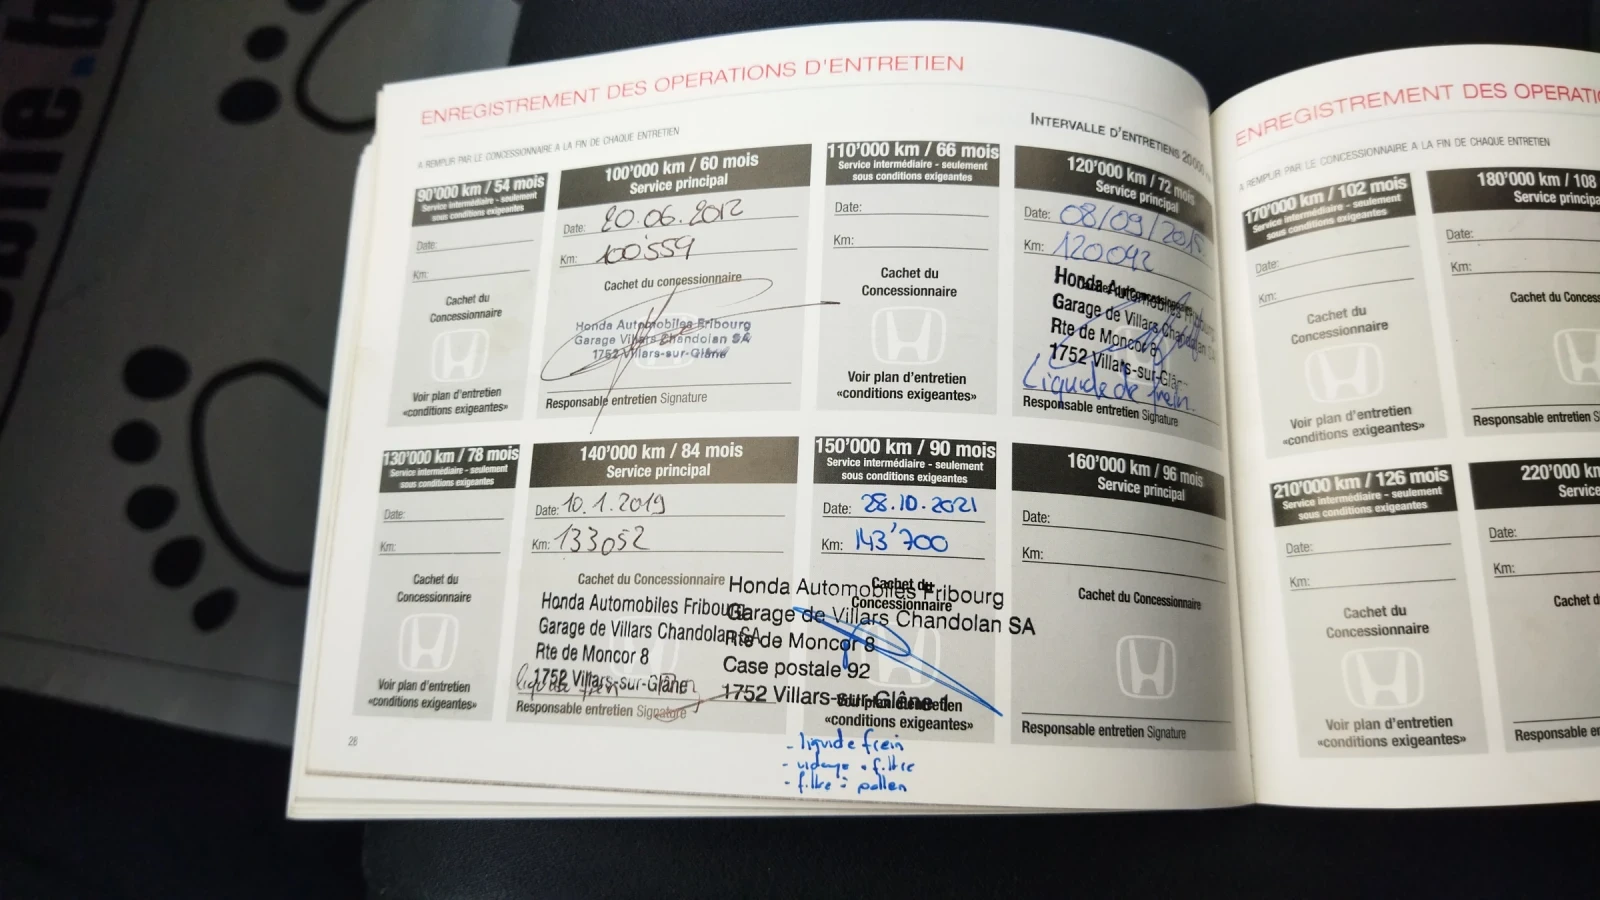 ENREGISTREMENT DES OPERATIONS D'ENTRETIEN
A REMPLIR PAR LE CONCESSIONNAIRE A LA FIN DE CHAQUE ENTRETIEN
INTERVALLE D'ENTRETIENS
90'000 km / 54 mois
Service intermédiaire - seulement
sous conditions exigeantes
Date:
Km:
Cachet du
Concessionnaire
Voir plan d'entretien
«conditions exigeantes»
100'000 km / 60 mois
Service principal
Date: 20.06.2012
Km: 100'559
Cachet du concessionnaire
Honda Automobiles Fribourg
Garage Villars Chandolan SA
1752 Villars-sur-Glâne
Responsable entretien Signature
110'000 km / 66 mois
Service intermédiaire - seulement
sous conditions exigeantes
Date:
Km:
Cachet du
Concessionnaire
Voir plan d'entretien
«conditions exigeantes»
120'000 km / 72 mois
Service principal
Date: 08/09/2015
Km: 120092
Honda Automobiles
Garage de Villars Chandolan
Rte de Moncor 8
1752 Villars-sur-Glân
Liquide de frein
Responsable entretien Signature
130'000 km / 78 mois
Service intermédiaire - seulement
sous conditions exigeantes
Date:
Km:
Cachet du
Concessionnaire
Voir plan d'entretien
«conditions exigeantes»
140'000 km / 84 mois
Service principal
Date: 10.1.2019
Km: 133052
Cachet du Concessionnaire
Honda Automobiles Fribourg
Garage de Villars Chandolan SA
Rte de Moncor 8
1752 Villars-sur-Glâne
liquide frein
Responsable entretien Signature
150'000 km / 90 mois
Service intermédiaire - seulement
sous conditions exigeantes
Date: 28.10.2021
Km: 143'700
Cachet du
Concessionnaire
Honda Automobiles Fribourg
Garage de Villars Chandolan SA
Rte de Moncor 8
Case postale 92
1752 Villars-sur-Glâne 1
«conditions exigeantes»
- liquide frein
- vidange + filtre
- filtre à pollen
160'000 km / 96 mois
Service principal
Date:
Km:
Cachet du Concessionnaire
Responsable entretien Signature
28
ENREGISTREMENT DES OPERATI
A REMPLIR PAR LE CONCESSIONNAIRE A LA FIN DE CHAQUE ENTRETIEN
170'000 km / 102 mois
Service intermédiaire - seulement
sous conditions exigeantes
Date:
Km:
Cachet du
Concessionnaire
Voir plan d'entretien
«conditions exigeantes»
180'000 km / 108
Service principa
Date:
Km:
Cachet du Conces
Responsable entretien S
210'000 km / 126 mois
Service intermédiaire - seulement
sous conditions exigeantes
Date:
Km:
Cachet du
Concessionnaire
Voir plan d'entretien
«conditions exigeantes»
220'000 km
Service
Date:
Km:
Cachet d
Responsable en